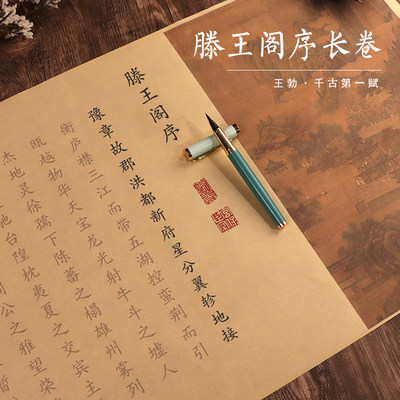 滕王阁序长卷
王勃·千古第一赋
滕王阁序
豫章故郡洪都新府星分翼轸地接
衡庐襟三江而带五湖控蛮荆而引
瓯越物华天宝龙光射牛斗之墟人
杰地灵徐孺下陈蕃之榻雄州雾列
台隍枕夷夏之交宾主
公之雅望棨